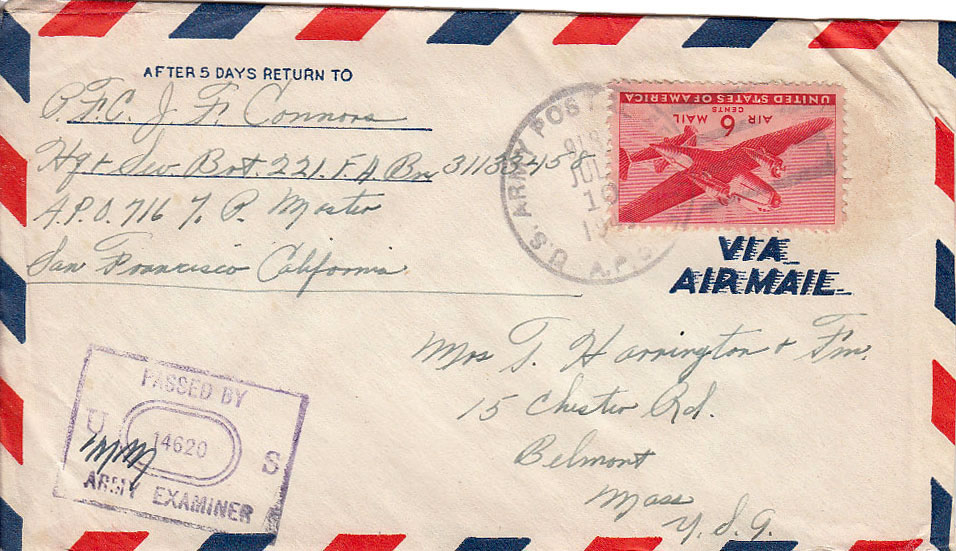 AFTER 5 DAYS RETURN TO
P.F.C. J. F. Connors
Hq + Ser. Bat. 221. F. A. Bn 31133458
A.P.O. 716 % P. Master
San Francisco California
U.S. ARMY POST
A.P.O.
JUL
19
UNITED STATES OF AMERICA
AIR 6 MAIL
CENTS
VIA
AIR MAIL
Mrs T. Harrington + Fm.
15 Chester Rd.
Belmont
Mass
U.S.A.
PASSED BY
U 14620 S
ARMY EXAMINER